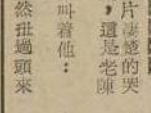 片凄楚的哭
，這是老陳
叫着他：
然扭過頭來